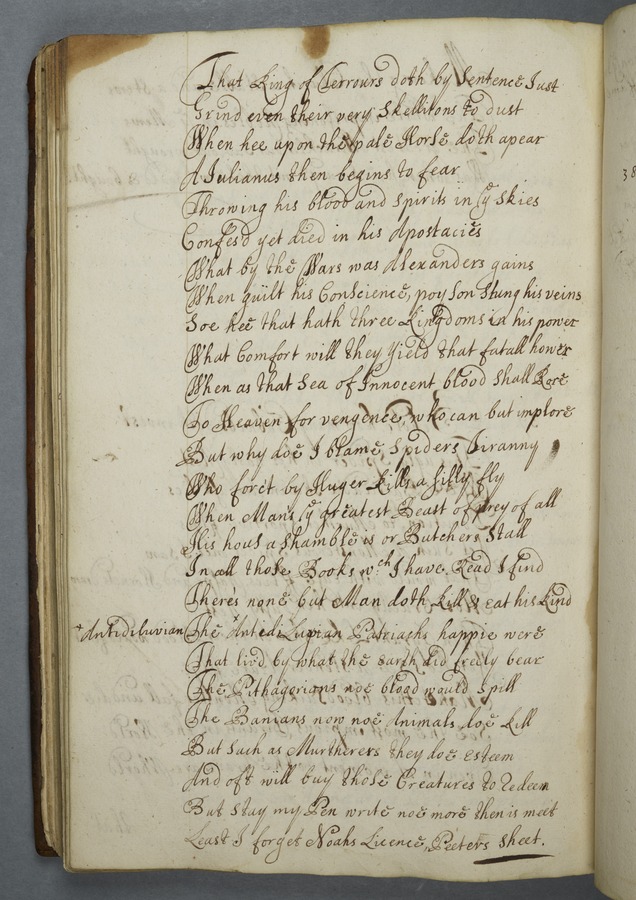 That King of Terrours doth by Sentence Just
Grind even their very Skellitons to dust
When hee upon the pale Horse doth apear
A Julianus then begins to fear
Throwing his blood and spirits in ye Skies
Confes'd yet died in his Apostacies
What by the Wars was Alexanders gains
When guilt his Conscience, poyson Stung his veins
Soe hee that hath three Kingdoms in his power
What Comfort will they yield that fatall hower
When as that Sea of Innocent blood shall Rore
To Heaven for vengence, who can but implore
But why doe I blame, Spiders Tiranny
Who forct by Huger Kills a silly fly
When Mans ye greatest Beast of prey of all
His hous a shambles is or Butchers Stall
In all those Books wch I have Read I find
There's none but Man doth kill & eat his kind
*Antidiluvian The *Antedi Luvian Patriachs happie were
That liv'd by what the earth did freely bear
The Pithagorians noe blood would spill
The Banians now noe Animals doe kill
But such as Murtherers they doe esteem
And oft will buy those Creatures to redeem
But stay my Pen write noe more then is meet
Least I forget Noahs Licence, Peeters sheet.
38